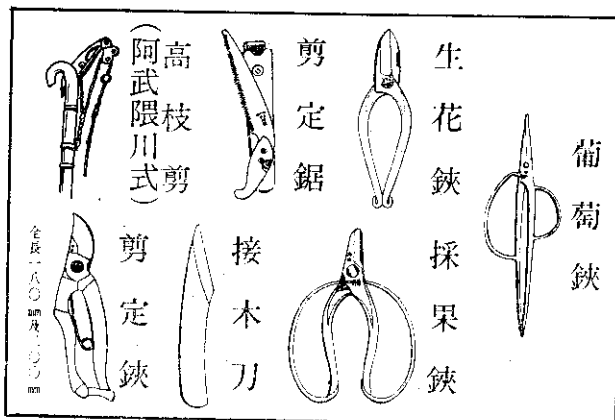 葡萄鋏
生花鋏
採果鋏
剪定鋸
接木刀
高枝剪
（阿武隈川式）
剪定鋏
全長一八〇㎜及二〇〇㎜